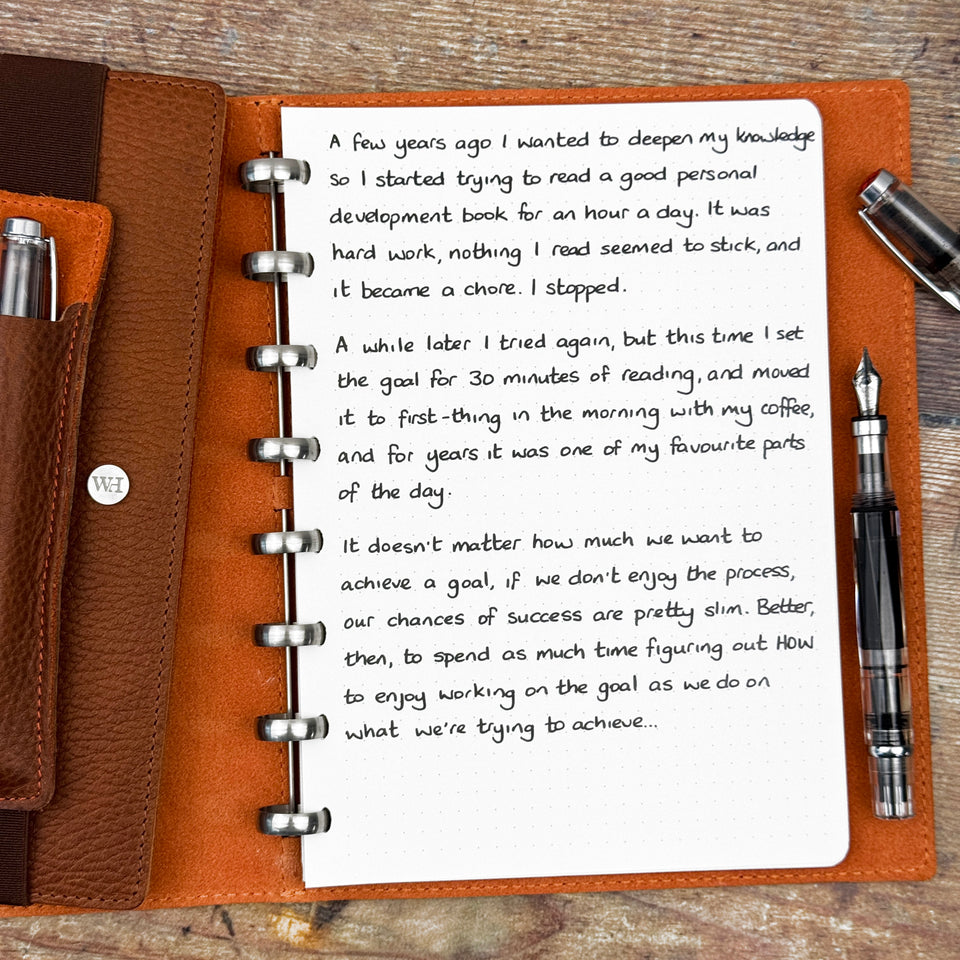 A few years ago I wanted to deepen my knowledge
so I started trying to read a good personal
development book for an hour a day. It was
hard work, nothing I read seemed to stick, and
it became a chore. I stopped.
A while later I tried again, but this time I set
the goal for 30 minutes of reading, and moved
it to first-thing in the morning with my coffee,
and for years it was one of my favourite parts
of the day.
It doesn't matter how much we want to
achieve a goal, if we don't enjoy the process,
our chances of success are pretty slim. Better,
then, to spend as much time figuring out HOW
to enjoy working on the goal as we do on
what we're trying to achieve...
WH